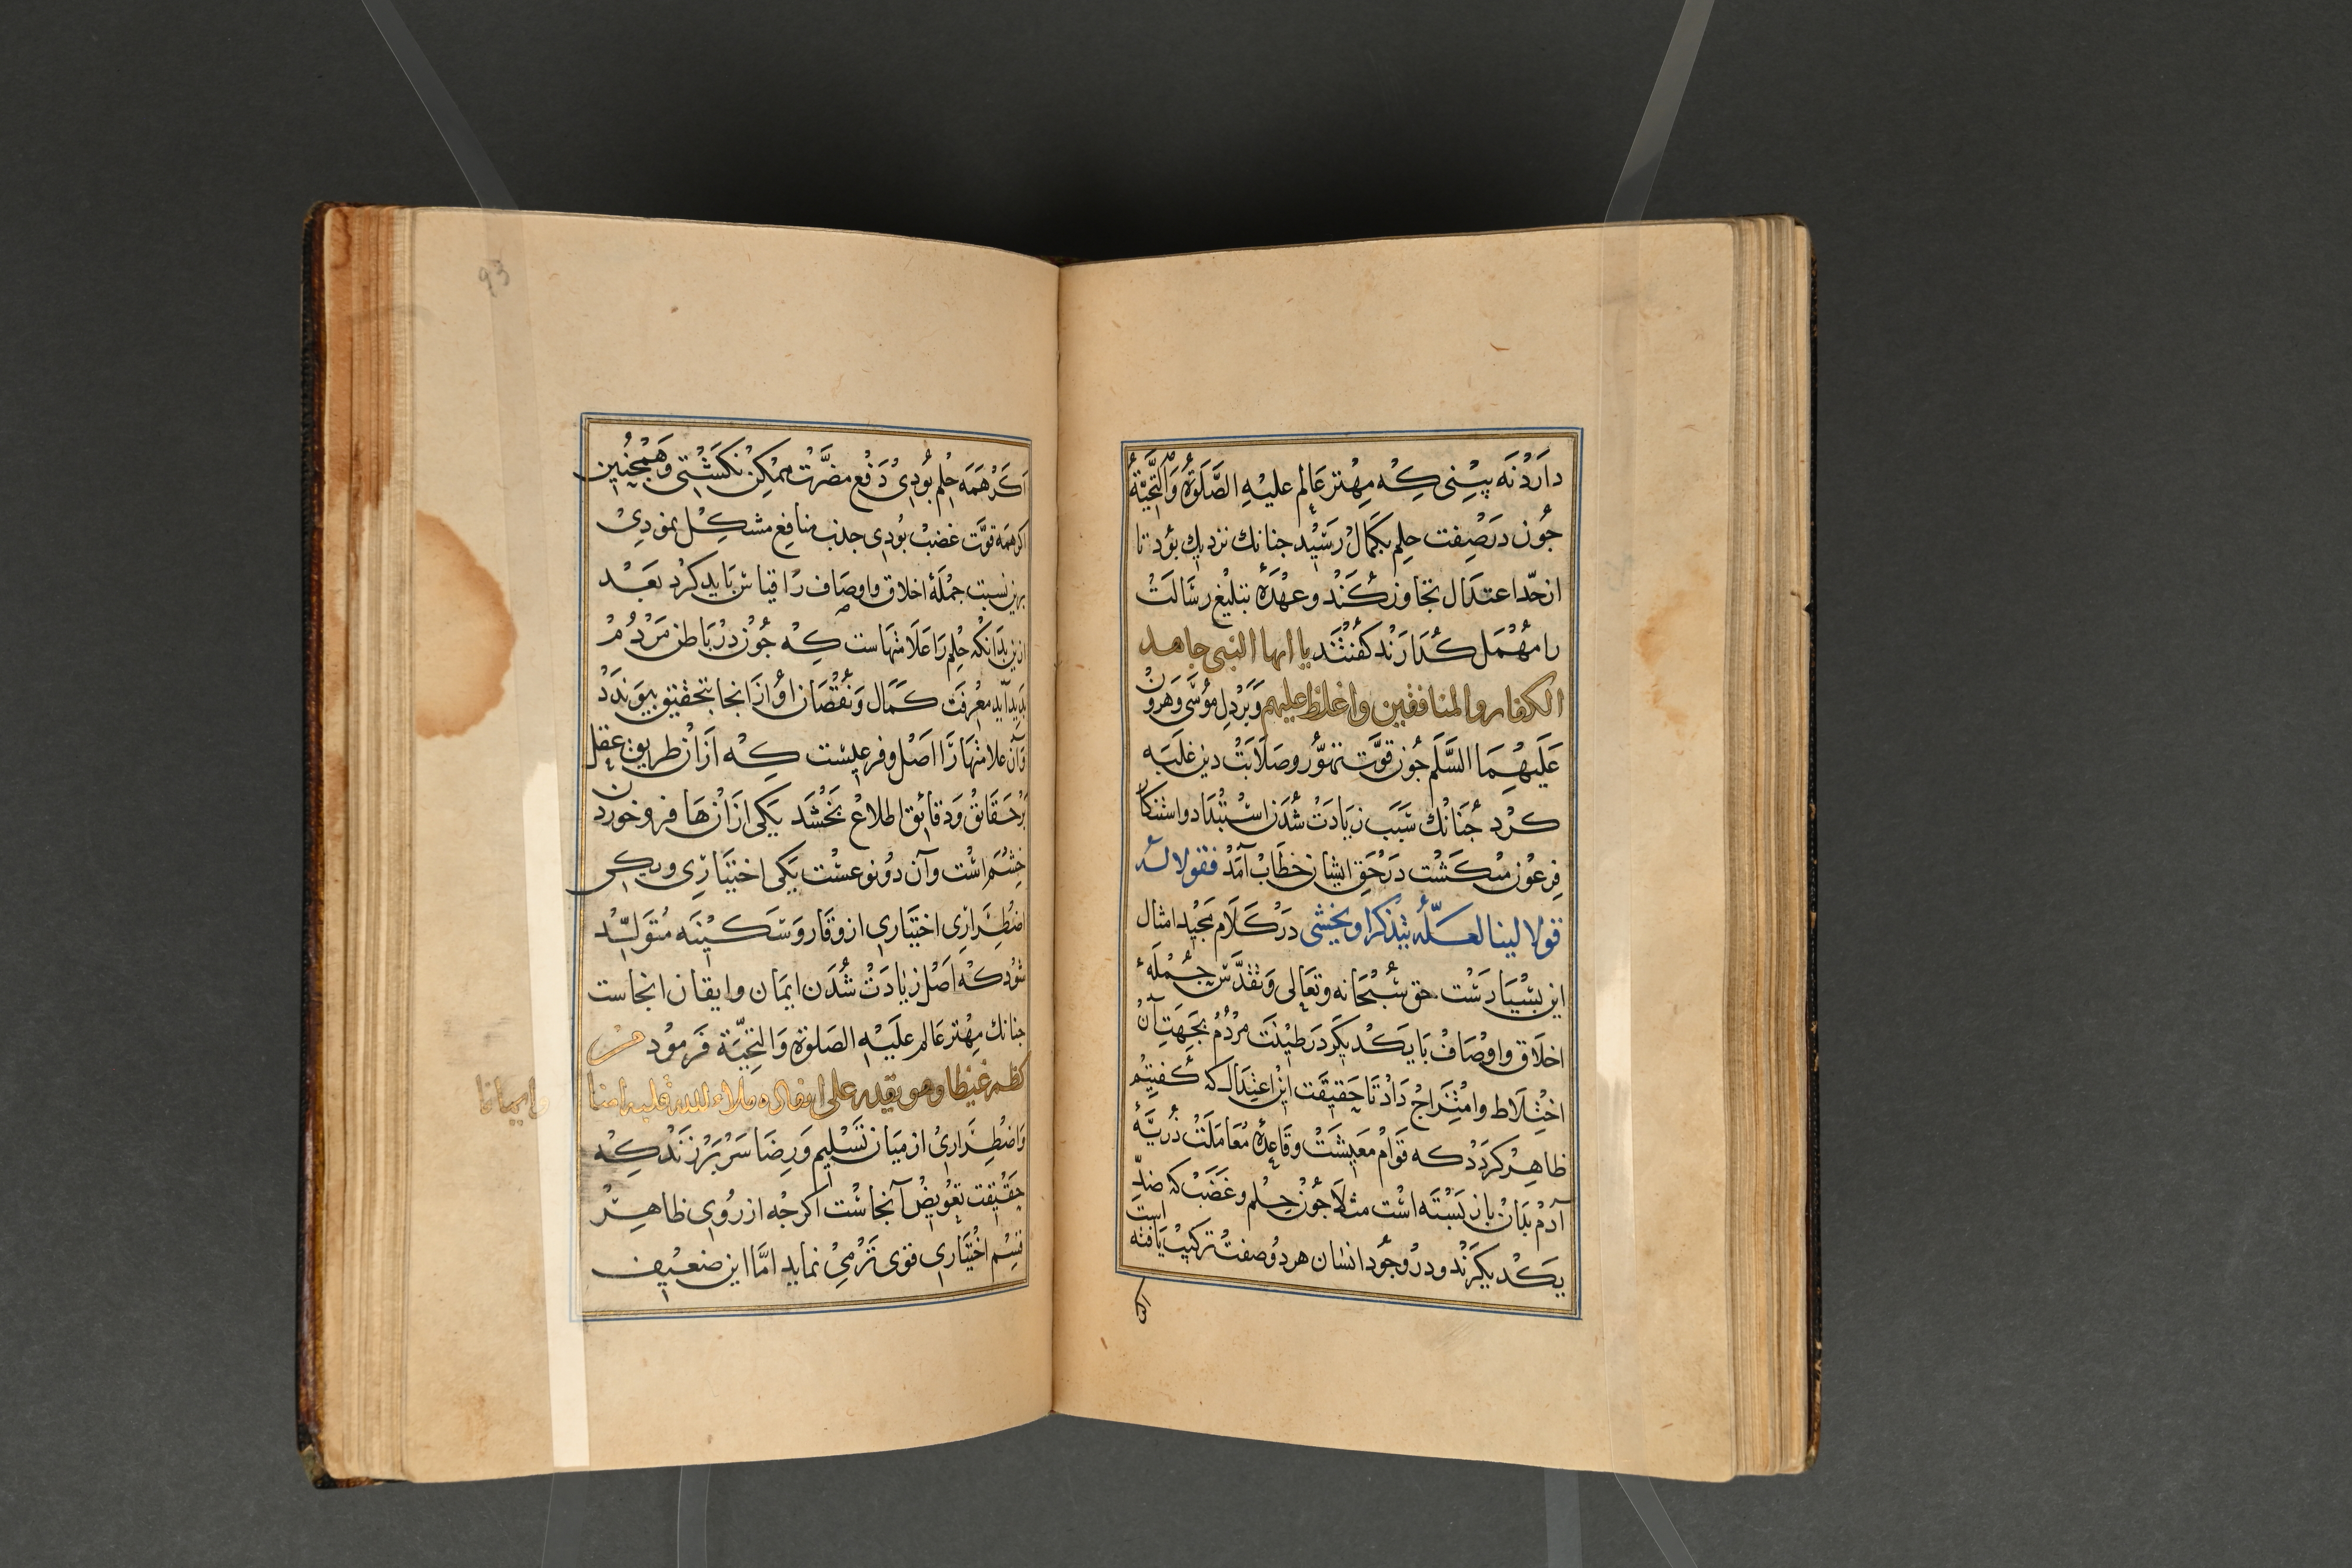 دارد نه بینی که مهتر عالم علیه الصلوة والتحیة
جون در صفت حلم بکمال رسید جنانك نزدیك بود تا
از حد اعتدال تجاوز کند و عهدهٔ تبلیغ رسالت
را مهمل کذارند کفتند یا ایها النبی جاهد
الکفار والمنافقین واغلظ علیهم و بر دل موسی وهرون
علیهما السلم جون قوت تهور وصلابت دین غلبه
کرد جنانك سبب زیادت شدن استبداد واستنکار
فرعون میکشت در حق ایشان خطاب آمد فقولا له
قولا لینا لعله یتذکر او یخشی در کلام مجید امثال
این بسیارست حق سبحانه وتعالی وتقدس جملهٔ
اخلاق واوصاف با یکدیکر در طینت مردم بجهت آن
اختلاط وامتزاج داد تا حقیقت این اعتدال که کفتیم
ظاهر کردد که قوام معیشت وقاعدهٔ معاملت ذریهٔ
آدم بدان باز بسته است مثلا جون حلم وغضب که ضد
یکدیکرند ودر وجود انسان هر دو صفت ترکیب یافته است
اکر
93
اکر همه حلم بودی دفع مضرت ممکن نکشتی وهمجنین
اکر همه قوت غضب بودی جذب منافع مشکل نمودی
برین نسبت جملهٔ اخلاق واوصاف را قیاس باید کرد بعد
ازین بدانکه حلم را علامتهاست که جون در باطن مردم
بدید آید معرفت کمال ونقصان او از انجا بتحقیق بیوندد
وآن علامتها را اصل وفرعیست که از ان طریق عقل
بر حقائق ودقائق اطلاع بخشد یکی از ان ها فرو خوردن
خشم است وآن دو نوعست یکی اختیاری ودیکر
اضطراری اختیاری از وقار وسکینه متولد
شود که اصل زیادت شدن ایمان وایقان انجاست
جنانك مهتر عالم علیه الصلوة والتحیة فرمود من
کظم غیظا وهو یقدر علی انفاذه ملاء الله قلبه امنا
وایمانا
واضطراری از میان تسلیم ورضا سر برزند که
حقیقت تعویض آنجاست اکرجه از روی ظاهر
قسم اختیاری قوی تر می نماید اما این ضعیف